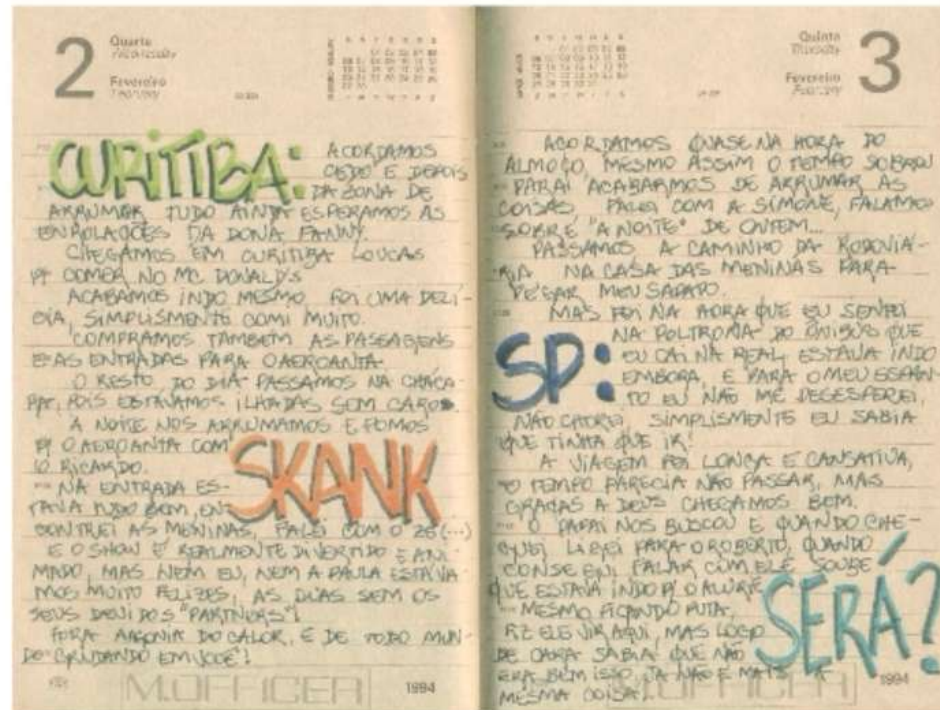 2
Quarta
Wednesday
Fevereiro
February
CURITIBA: ACORDAMOS
CEDO E DEPOIS
DA ZONA DE
ARRUMAR TUDO AINDA ESPERAMOS AS
ENROLAÇÕES DA DONA FANNY.
CHEGAMOS EM CURITIBA LOUCAS
P/ COMER NO MC DONALD'S
ACABAMOS INDO MESMO, FOI UMA DELÍ-
CIA, SIMPLISMENTE COMI MUITO.
COMPRAMOS TAMBÉM AS PASSAGENS
E AS ENTRADAS PARA O AEROANTA.
O RESTO DO DIA PASSAMOS NA CHÁCA-
RA, POIS ESTAVAMOS ILHADAS SEM CARO.
A NOITE NOS ARRUMAMOS E FOMOS
P/ O AEROANTA COM
O RICARDO.
SKANK
NA ENTRADA ES-
TAVA TUDO BEM, EN
CONTREI AS MENINAS, FALEI COM O ZÉ (...)
E O SHOW É REALMENTE DIVERTIDO E ANI-
MADO, MAS NEM EU, NEM A PAULA ESTAVA-
MOS MUITO FELIZES, AS DUAS SEM OS
SEUS DEVIDOS "PARTNERS"!
FORA AGONIA DO CALOR, E DE TODO MUN-
DO "GRUDANDO EM VOCÊ"!
M.OFFICER
1994
Quinta
Thursday
Fevereiro
February
3
ACORDAMOS QUASE NA HORA DO
ALMOÇO, MESMO ASSIM O TEMPO SOBROU
PARA ACABARMOS DE ARRUMAR AS
COISAS. FALEI COM A SIMONE, FALAMOS
SOBRE "A NOITE" DE ONTEM...
PASSAMOS A CAMINHO DA RODOVIÁ-
RIA NA CASA DAS MENINAS PARA
PEGAR MEU SAPATO.
MAS FOI NA HORA QUE EU SENTEI
NA POLTRONA DO ÔNIBUS QUE
SP: EU CAI NA REAL, ESTAVA INDO
EMBORA, E PARA O MEU ESPAN-
TO EU NÃO ME DESESPEREI,
NÃO CHOREI, SIMPLISMENTE EU SABIA
QUE TINHA QUE IR!
A VIAGEM FOI LONGA E CANSATIVA,
O TEMPO PARECIA NÃO PASSAR, MAS
GRAÇAS A DEUS CHEGAMOS BEM.
O PAPAI NOS BUSCOU E QUANDO CHE-
GUEI LIGUEI PARA O ROBERTO, QUANDO
CONSEGUI FALAR COM ELE SOUBE
QUE ESTAVA INDO P/ O
MESMO FICANDO PUTA,
FIZ ELE VIR AQUI, MAS LOGO
DE CARA SABIA QUE NÃO
ERA BEM ISSO, JÁ NÃO É MAIS A
MESMA COISA!
SERÁ?
M.OFFICER
1994